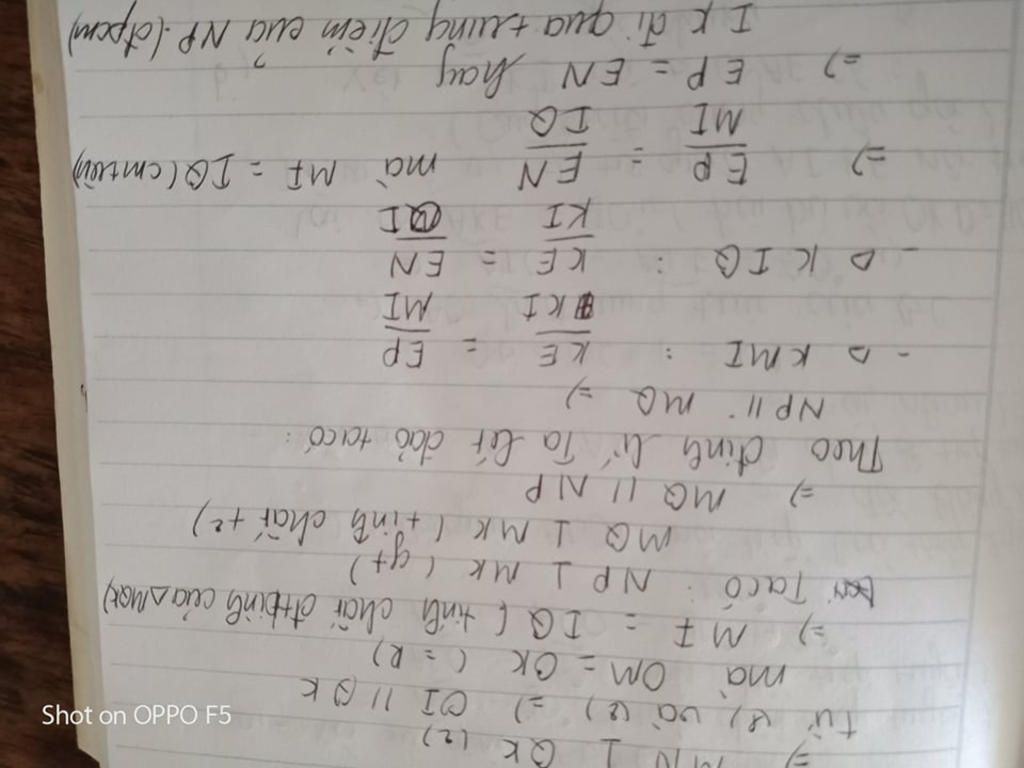 => MN ⊥ QK (2)
Từ (1) và (2) => OI // QK
mà OM = OK (= R)
=> MI = IQ (tính chất đtbình của △MQK)
Ta có : NP ⊥ MK (gt)
MQ ⊥ MK (tính chất t²)
=> MQ // NP
Theo định lí Ta lét đảo ta có :
NP // MQ =>
- △ KMI : KE/KI = EP/MI
- △ KIQ : KE/KI = EN/QI
=> EP/MI = EN/IQ mà MI = IQ (cmtrên)
=> EP = EN hay
IK đi qua trung điểm của NP. (đpcm)
Shot on OPPO F5